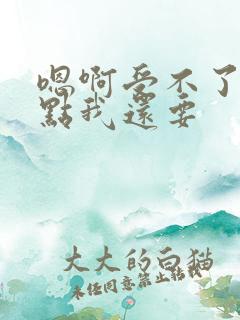 嗯啊受不了
點我還要
大大的白猫
未经同意禁止转载